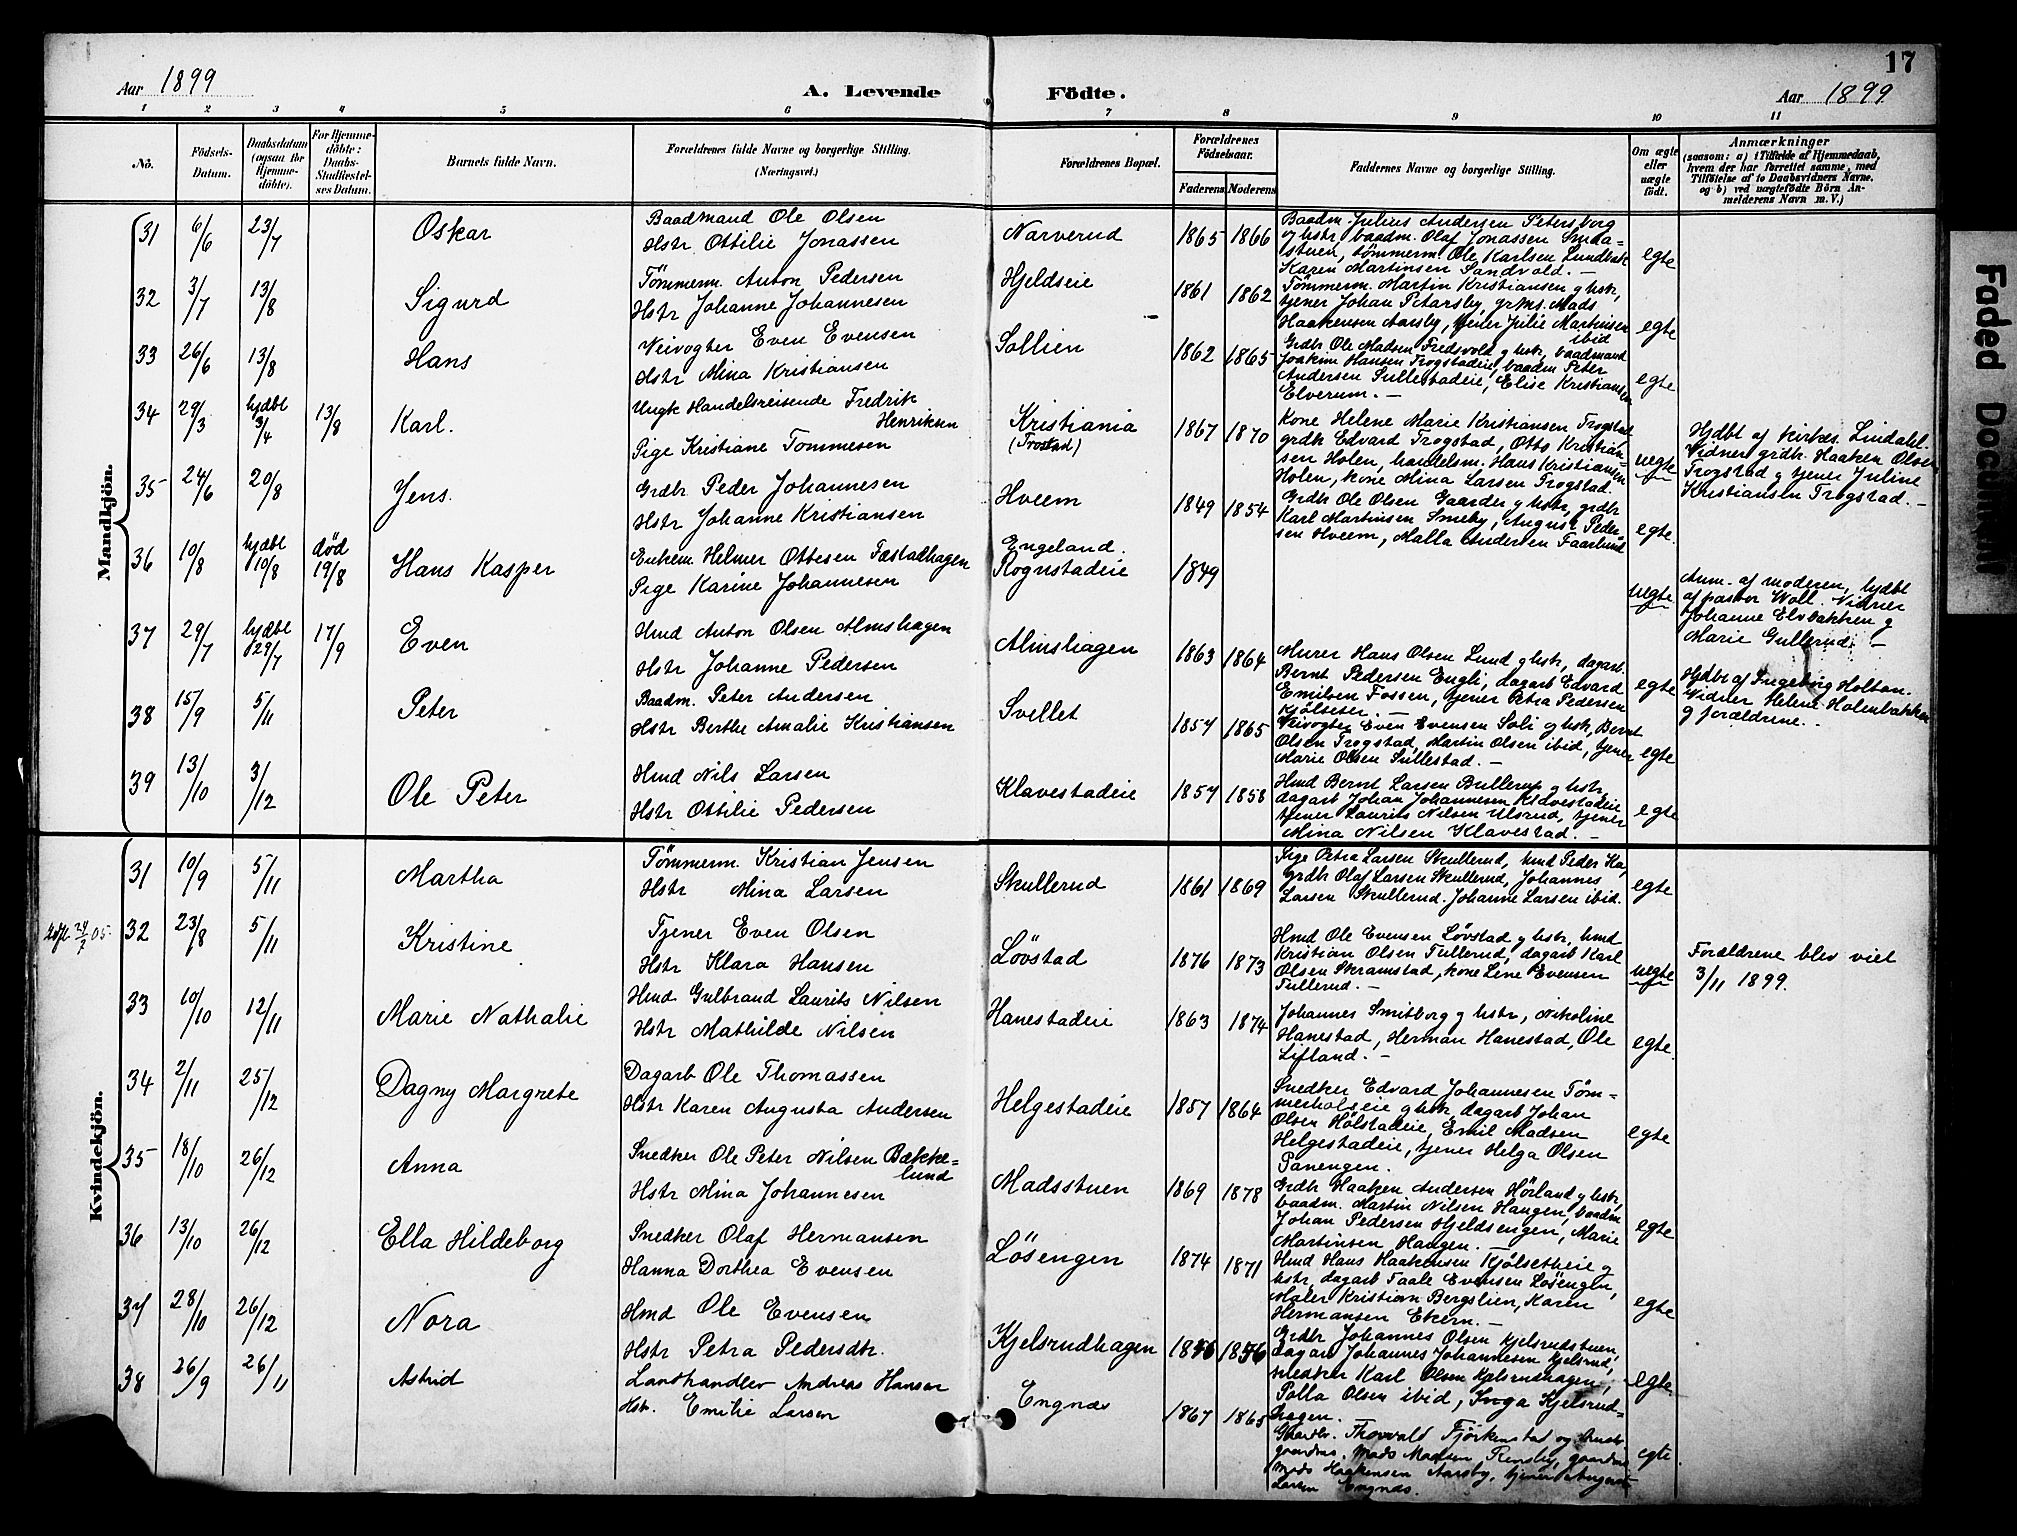 17
Aar 1899
A. Levende Födte.
Aar 1899
1 2 3 4 5 6 7 8 9 10 11
No.
Födsels-Datum.
Daabsdatum (ogsaa for Hjemmedöbte).
For Hjemmedöbte: Daabs-Stadfæstelses Datum.
Barnets fulde Navn.
Forældrenes fulde Navne og borgerlige Stilling.
(Næringsvei.)
Forældrenes Bopæl.
Forældrenes Födselsaar.
Faderens Moderens
Faddernes Navne og borgerlige Stilling.
Om ægte eller uægte födt.
Anmærkninger
(saasom: a) i Tilfælde af Hjemmedaab, hvem der har forrettet samme, med Tilföielse af to Daabsvidners Navne, og b) ved uægtefödte Börn Anmelderens Navn m. V.)
Mandkjön.
31 6/6 23/7 Oskar
Baadmand Ole Olsen
Hstr Ottilie Jonassen
Narverud 1865 1866
Baadm. Julius Andersen Petersborg
g hstr, baadm. Olaf Jonassen Smda-
stuen, tømmerm. Ole Karlsen Lundbæk
Karen Martinsen Sandvold. —
egte
32 3/7 13/8 Sigurd
Tømmerm. Anton Pedersen
Hstr Johanne Johannesen
Hjeldseie 1861 1862
Tømmerm. Martin Kristiansen g hstr,
tjener Johan Petarsby, grms. Mads
Haakensen Aarsby, tjener Julie Martinsen
ibid
egte
33 26/6 13/8 Hans
Veivogter Even Evensen
Hstr Mina Kristiansen
Sollien 1862 1865
Grdbr Ole Madsen Fredsvold g hstr, baadmand
Joakim Hansen Trogstadeie, baadm Peter
Andersen Sullestadeie, Elise Kristiansen
Elverum. —
egte
34 29/3 hjdbt 3/4 13/8 Karl.
Ungk Handelsreisende Fredrik
Henriksen
Pige Kristiane Tommesen
Kristiania
(Trostad)
1867 1870
Kone Helene Marie Kristiansen Trogstad
grdbr Edvard Trogstad, Otto Kristian-
sen Holen, handelsm. Hans Kristiansen
Holen, kone Mina Larsen Trogstad.
uegte
Hjdbt af kirkes. Lindahl.
Vidner grdbr. Haaken Olsen
Trogstad g tjener Juline
Kristiansen Trogstad. —
35 24/6 20/8 Jens.
Grdbr Peder Johannesen
Hstr Johanne Kristiansen
Hveem 1849 1854
Grdbr Ole Olsen Gaarder g hstr, grdbr
Karl Martinsen Smeby, August Peder-
sen Hveem, Malla Andersen Faarlund
egte.
36 10/8 hjdbt 10/8 død 19/8 Hans Kasper
Enkem. Helmer Ottesen Fæstadhagen
Pige Karine Johannesen
Engeland.
Rognstadeie 1849
uegte
Anm. af moderen, hjdbt
af pastor Woll. Vidner
Johanne Elvbakken g
Marie Gullerud. —
37 29/7 hjdbt 29/7 17/9 Even
Hmd Anton Olsen Almshagen
Hstr Johanne Pedersen
Almshagen 1863 1864
Murer Hans Olsen Lund g hstr, dagarb.
Bernt Pedersen Engli, dagarb Edvard
Emilsen Fossen, tjener Petra Pedersen
Kjølseter. —
egte
Hjdbt af Ingeborg Holton.
Vidner Helene Holenbakken
g forældrene.
38 15/9 5/11 Peter
Baadm. Peter Andersen
Hstr Berthe Amalie Kristiansen
Svellet 1854 1865
Veivogter Even Evensen Soli g hstr, Bernt
Olsen Trogstad, Martin Olsen ibid, tjener
Marie Olsen Sullestad. —
egte
39 13/10 3/12 Ole Peter
Hmd Nils Larsen
Hstr Ottilie Pedersen
Klavestadeie 1857 1858
Hmd Bernt Larsen Bullerup g hstr,
dagarb Johan Johannesen Klavestadeie
tjener Laurits Nilsen Ulsrud, tjener
Mina Nilsen Klavestad. —
egte
Kvindekjön.
31 10/9 5/11 Martha
Tømmerm. Kristian Jensen
Hstr Mina Larsen
Skullerud 1861 1869
Pige Petra Larsen Skullerud, hmd Peder
grdbr Olaf Larsen Skullerud, Johannes
Larsen Skullerud. Johanne Larsen ibid.
egte
05.
32 23/8 5/11 Kristine
Tjener Even Olsen
Hstr Klara Hansen
Løvstad 1876 1873
Hmd Ole Evensen Løvstad g hstr, hmd
Kristian Olsen Tullerud, dagarb Karl
Olsen Skramstad, kone Line Evensen
Tullerud. —
uegte
Forældrene blev viet
3/11 1899.
33 10/10 12/11 Marie Nathalie
Hmd Gulbrand Laurits Nilsen
Hstr Mathilde Nilsen
Hanestadeie 1863 1874
Johannes Smitborg g hstr, Nikoline
Hanestad, Herman Hanestad, Ole
Lifland. —
egte.
34 2/11 25/12 Dagny Margrete
Dagarb Ole Thomassen
Hstr Karen Augusta Andersen
Helgestadeie 1857 1864
Snedker Edvard Johannesen Tøm-
merholseie g hstr, dagarb Johan
Olsen Holstadeie, Emil Madsen
Helgestadeie, tjener Helga Olsen
Panengen.
egte
35 18/10 26/12 Anna
Snedker Ole Peter Nilsen Bække-
lund
Hstr Mina Johannesen
Madsstuen 1869 1878
Grdbr Haaken Andersen Hørland g hstr,
baadm. Martin Nilsen Haugen, baadm
Johan Pedersen Hjeldsengen, Marie
Martinsen Haugen. —
egte
36 13/10 26/12 Ella Hildeborg
Snedker Olaf Hermansen
Hanna Dorthea Evensen
Løsengen 1874 1871
Hmd Hans Haakensen Kjølsetheie g
hstr, dagarb Taale Evensen Løsengen,
Maler Kristian Bergslien, Karen
Hermansen Ekern. —
egte
37 28/10 26/12 Nora
Hmd Ole Evensen
Hstr Petra Pedersdtr.
Kjelsrudhagen 1856 1856
Grdbr Johannes Olsen Kjelsrudstuen,
dagarb Johannes Johannesen Kjelsrud,
snedker Karl Olsen Kjelsrudhagen,
Polla Olsen ibid, Inga Kjelsrud-
hagen.
egte
38 26/9 26/11 Astrid
Landhandler Andreas Hansen
Hstr. Emilie Larsen
Engnæs 1867 1865
Gaardbr. Thorvald Fjørkenstad og hustr
gaardms. Mads Madsen Rensby, gaardms
Mads Haakensen Aarsby, tjener August
Larsen Engnæs.
egte
Faded Document